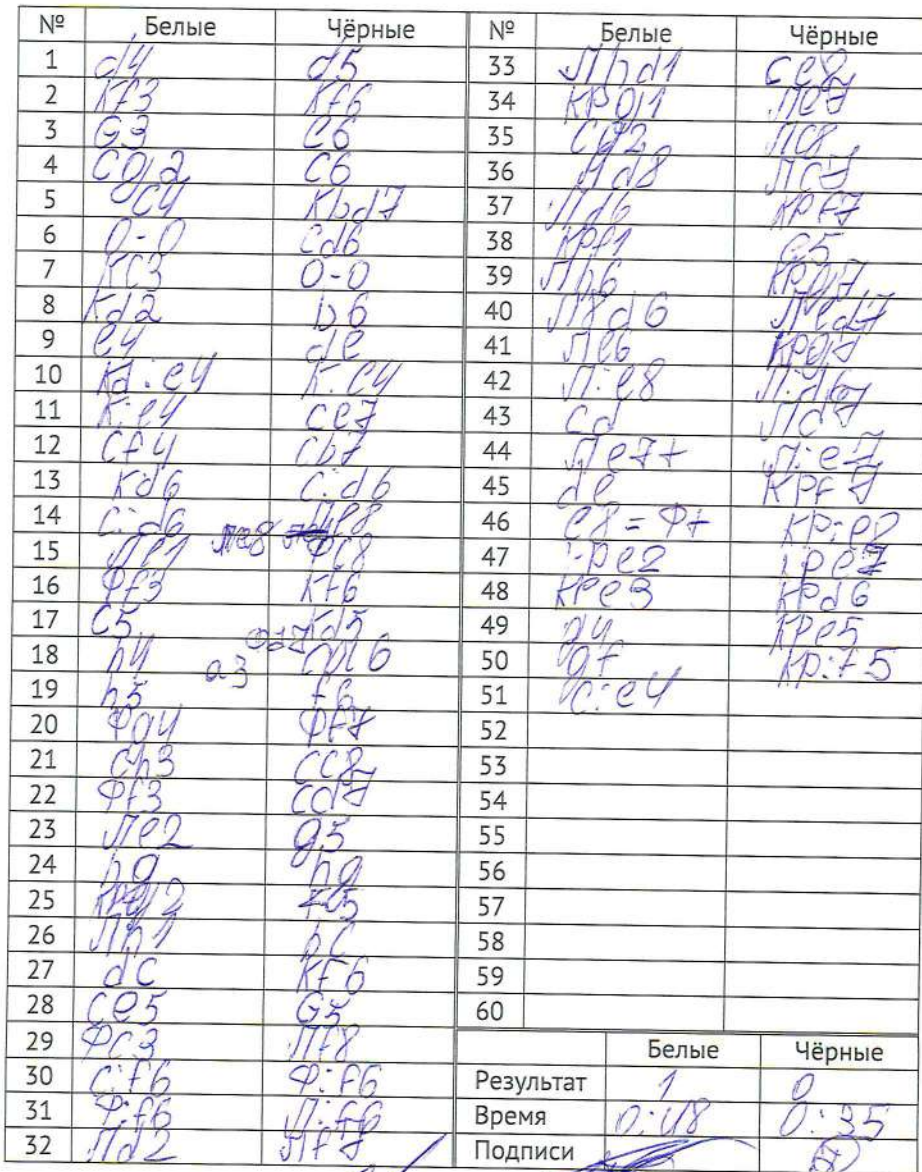 № Белые Чёрные
1 d4 d5
2 Kf3 Kf6
3 G3 e6
4 Cg2 C6
5 C4 Kbd7
6 0-0 Cd6
7 KC3 0-0
8 Kd2 b6
9 e4 de
10 Kd:e4 K:e4
11 K:e4 Ce7
12 Cf4 Cb7
13 Kd6 C:d6
14 C:d6 Ле8
15 Ле1 Ле8 Фc8
16 Фf3 Kf6
17 C5 Kd5
18 h4 a3 Фd7 h6
19 h5 f6
20 Фg4 Фf7
21 Ch3 CC8
22 Фf3 Cd7
23 Ле2 g5
24 hg hg
25 Kpg2 f5
26 Лh1 bC
27 dC Kf6
28 Ce5 G5
29 ФC3 Лf8
30 C:f6 Ф:f6
31 Ф:f6 Л:f6
32 Лd2 Лf7
№ Белые Чёрные
33 Лhd1 Ce8
34 Kpg1 Ле7
35 Cg2 ЛC8
36 Лd8 ЛC7
37 Лd6 Kpf7
38 Kpf1 e5
39 Лb6 Kpg7
40 Л8d6 Лed7
41 Лe6 Kpg7
42 Л:e8 Л:d6
43 Cd Лd7
44 Ле7+ Л:e7
45 de Kpf7
46 e8=Ф+ Kp:e8
47 Kpe2 Kpe7
48 Kpe3 Kpd6
49 g4 Kpe5
50 gf Kp:f5
51 C:e4
52
53
54
55
56
57
58
59
60
Белые Чёрные
Результат 1 0
Время 0:48 0:35
Подписи